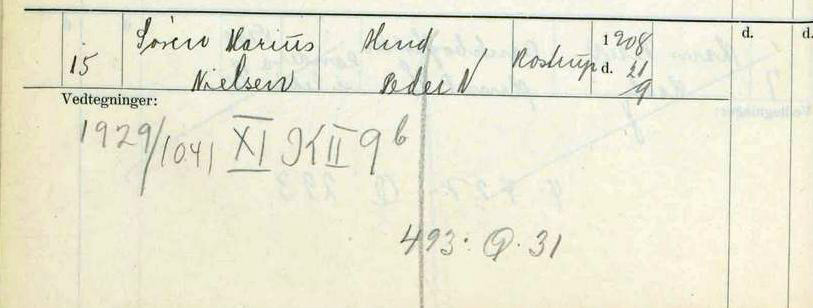 d. d.
Søren Marius Hmd 1908
15 Nielsen Peder N Rostrup d. 21/9
Vedtegninger:
1929/1041 XI K II 9 b
493. Q. 31